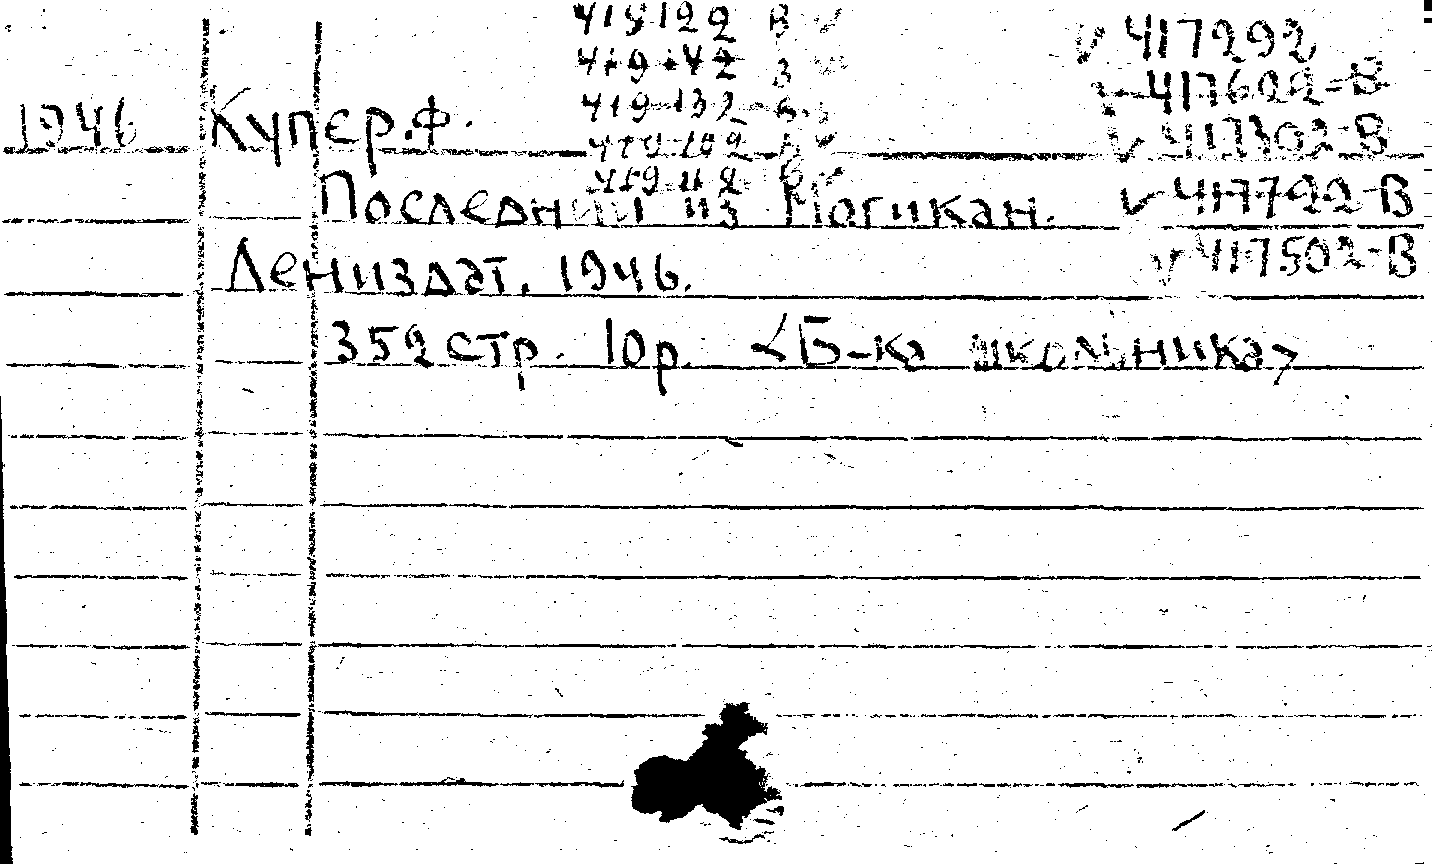 419122 В
419142 В
419132-В.
419102 В
419112 В
417292
417622-В
417302-В
417722-В
417502-В
1946 Купер.Ф.
Последний из Могикан.
Лениздат. 1946.
352 стр. 10р. <Б-ка школьника>